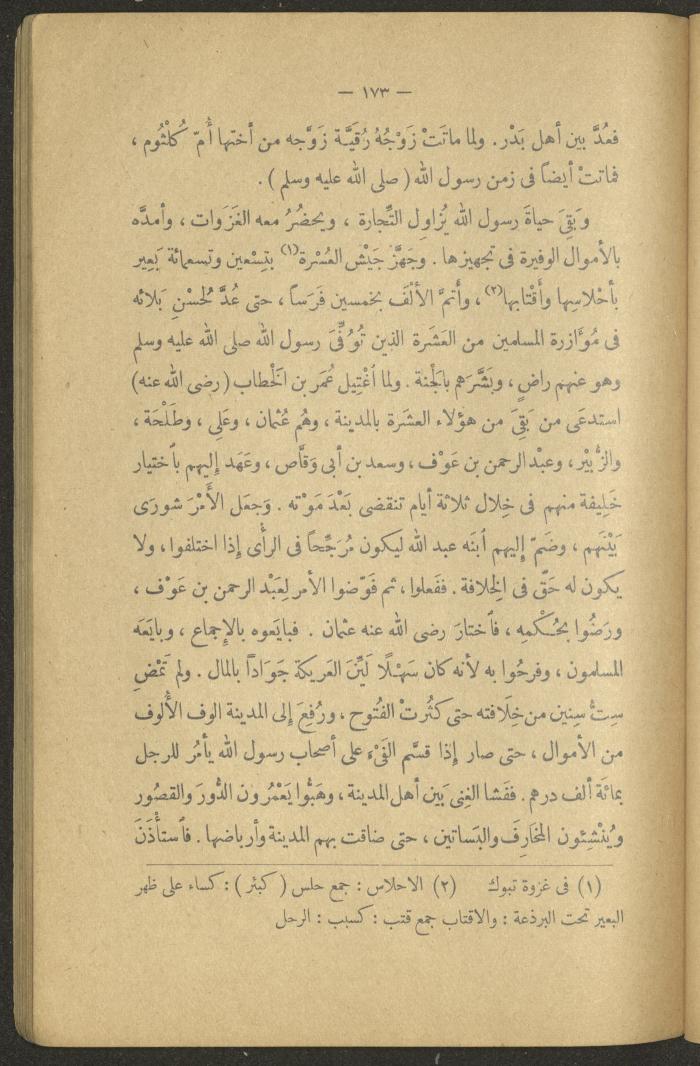 — ١٧٣ —
فعُدَّ بين أهل بَدْر. ولما ماتَتْ زَوْجُهُ رُقَيَّة زَوَّجه من أختها أُمّ كُلْثُوم ،
فماتتْ أيضاً فى زمن رسول الله ( صلى الله عليه وسلم ) .
وبَقِىَ حياةَ رسول الله يُزاوِل التِّجارة ، ويحضُرُ معه الغَزَوات ، وأمدَّه
بالأموال الوفيرة فى تجهيزها . وجَهَّزَ جَيْش العُسْرة(١) بتِسْعين وتسعمائة بَعِير
بأحْلاسِها وأقْتابها(٢) ، وأتمَّ الألْفَ بخمسين فَرَساً ، حتى عُدَّ لحُسْنِ بَلائه
فى مُؤَازرة المسلمين من العَشَرة الذين تُوُفِّىَ رسول الله صلى الله عليه وسلم
وهو عنهم راضٍ ، وبَشَّرَهم بالجَنة . ولما اُغْتِيل عُمَر بن الْخطاب ( رضى الله عنه )
استدعَى من بَقِىَ من هؤلاء العشَرة بالمدينة ، وهُم عُثمان ، وعَلِى ، وطَلْحَة ،
والزُّبيْر ، وعبْد الرحمن بن عَوْف ، وسعد بن أبى وَقَّاص ، وعَهَد إليهم بٱختيار
خليفة منهم فى خِلال ثلاثة أيام تنقضى بَعْدَ مَوْته . وجَعَل الأمْرَ شورَى
بَيْنَهم ، وضَمّ إليهم ٱبنَه عبد الله ليكون مُرَجِّحاً فى الرأى إذا اختلفوا ، ولا
يكون له حَقّ فى الخِلافة . ففَعلوا ، ثم فَوّضوا الأمر لِعَبْد الرحمن بن عَوْف ،
ورَضُوا بحُكْمِه ، فٱختارَ رضى الله عنه عثمان . فبايَعوه بالإجماع ، وبايَعَه
المسلمون ، وفرحُوا به لأنه كان سَهْلًا لَيِّنَ العَريكة جَوَادًا بالمال . ولم تَمْضِ
سِتُّ سِنين من خِلَافته حتى كثُرتْ الفُتوح ، ورُفِعَ إلى المدينة الوف الأُلوف
من الأموال ، حتى صار إذا قسَّم الفَىْء على أصحاب رسول الله يأمُر للرجل
بمائَة ألف درهم . ففَشا الغِنى بَين أهل المدينة ، وهَبُّوا يَعْمُرون الدُّورَ والقصُور
ويُنْشِئون المَخَارِفَ والبَساتين ، حتى ضاقت بهم المدينة وأرباضها . فٱستأذَنَ
(١) فى غزوة تبوك (٢) الاحلاس : جمع حلس ( كبئر ) : كساء على ظهر
البعير تحت البرذعة : والاقتاب جمع قتب : كسبب : الرحل